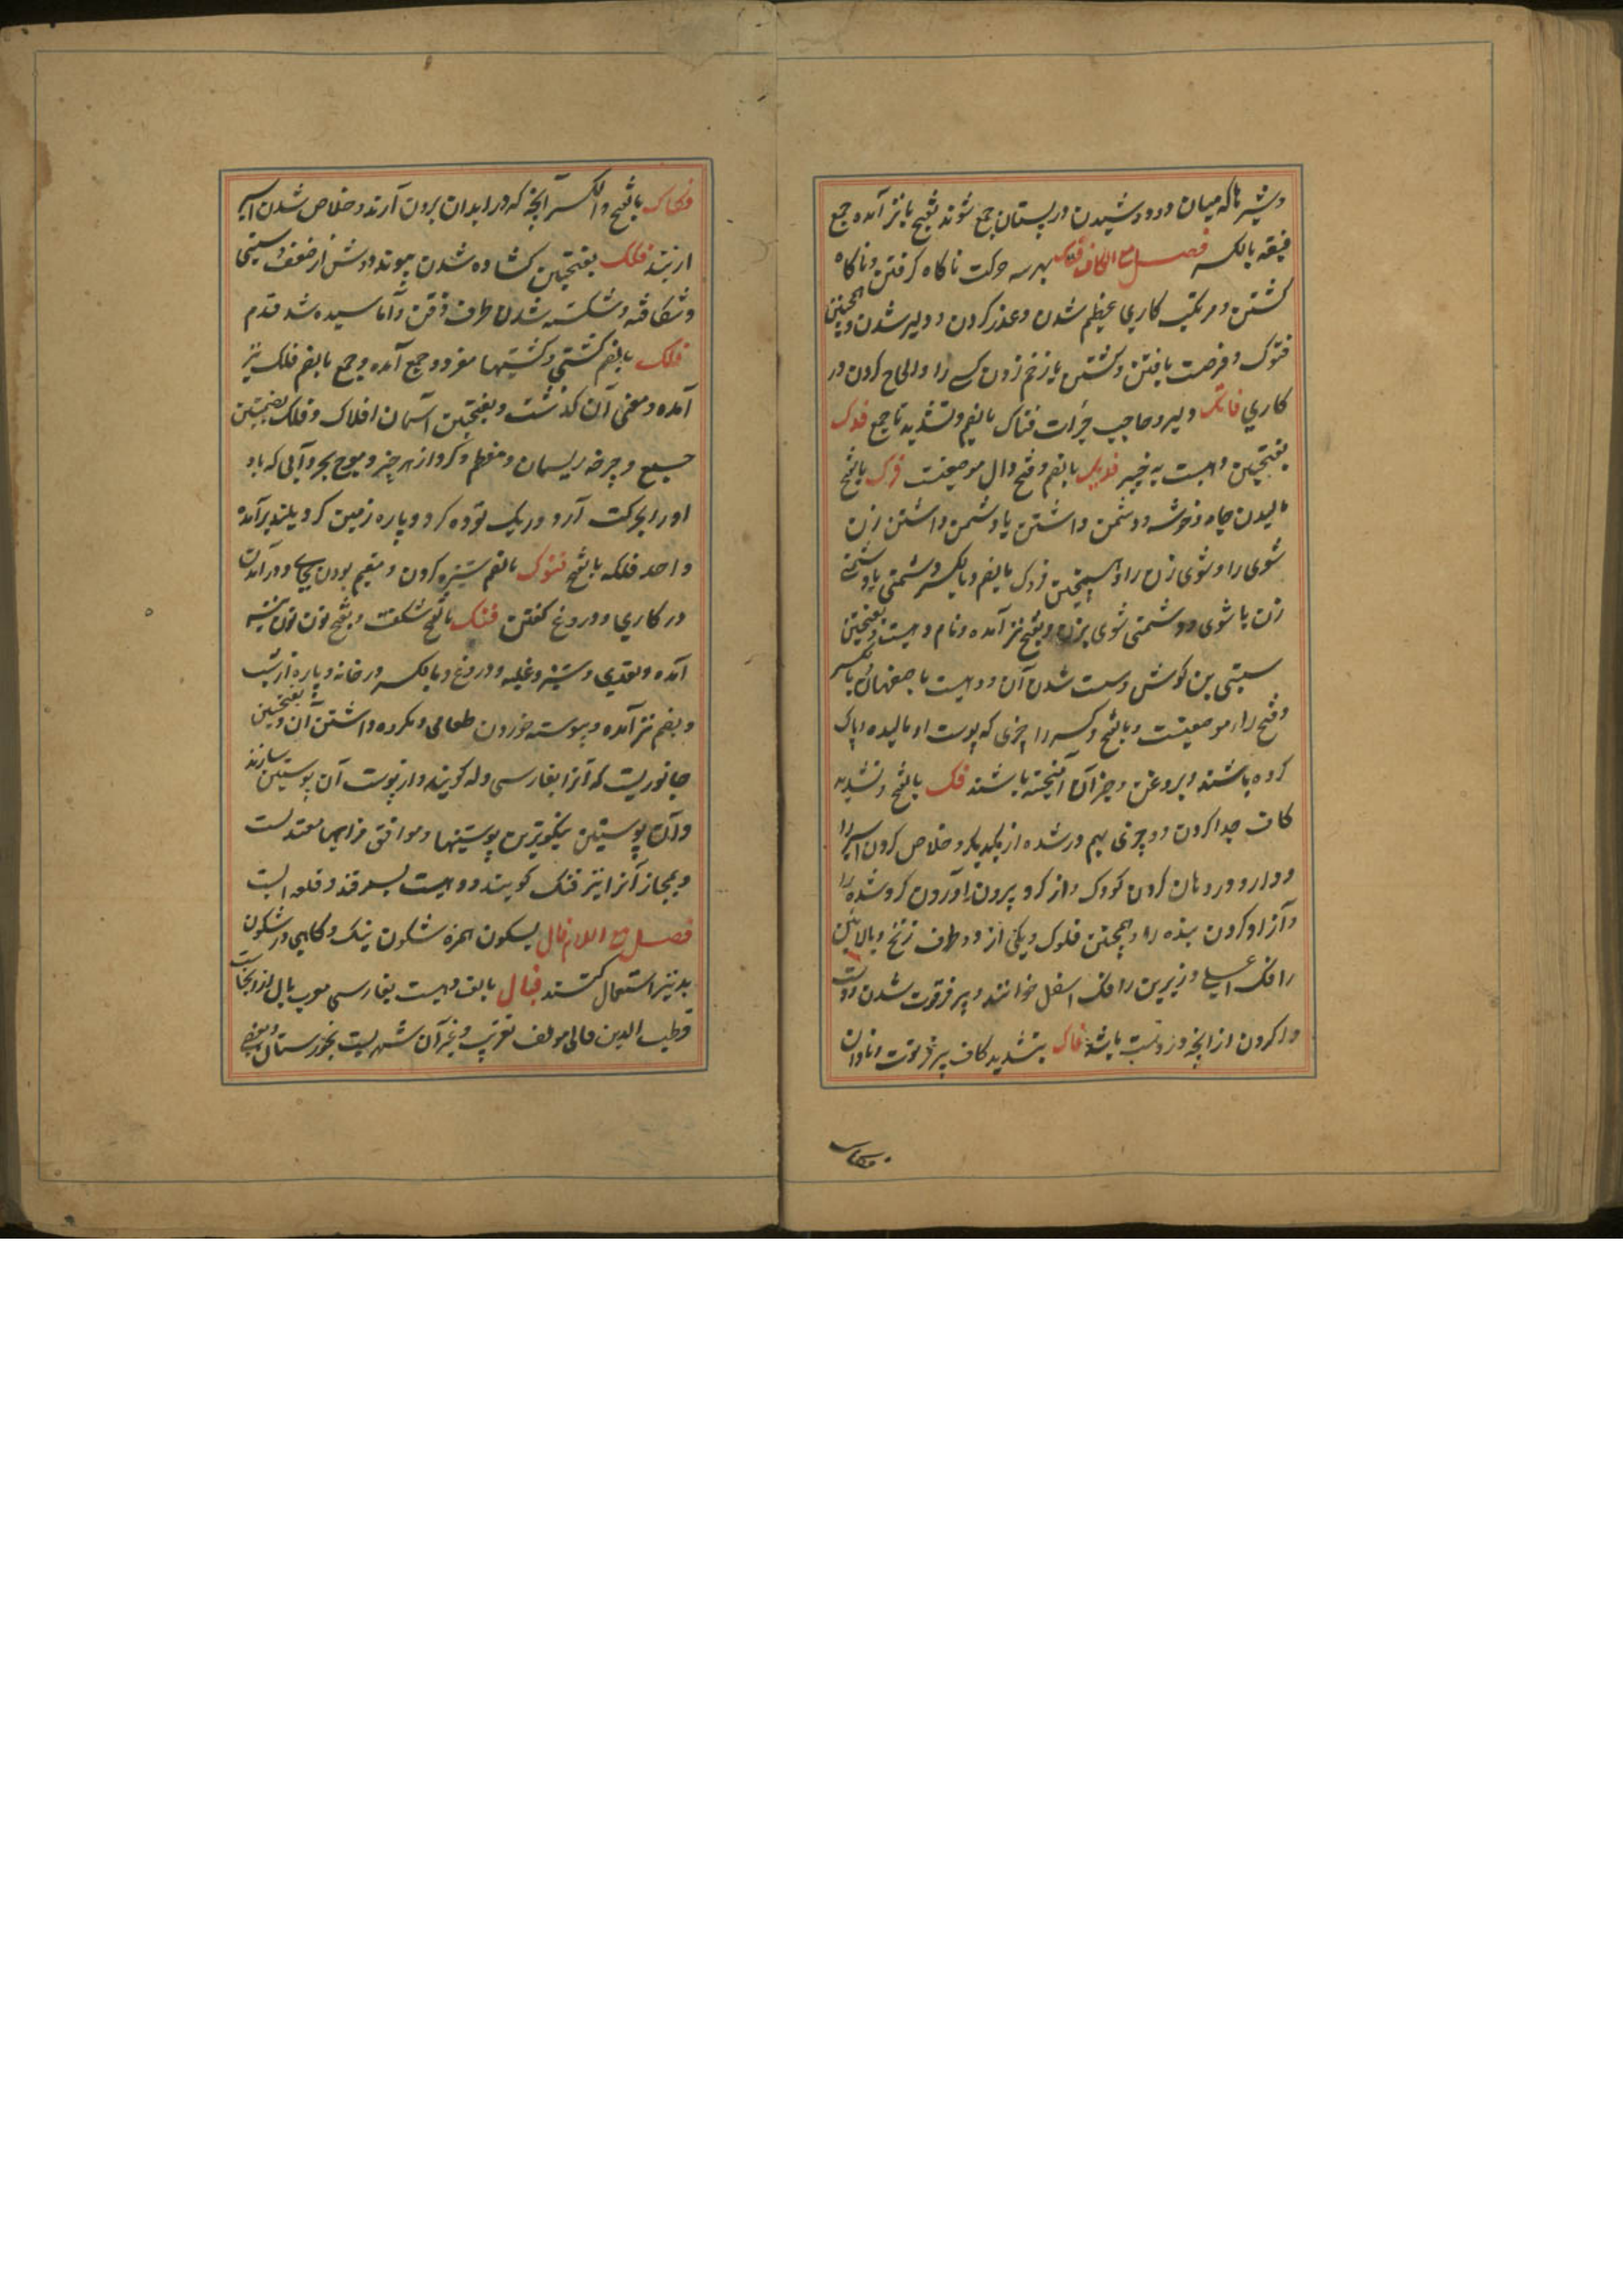 و شیر ها که میان دو دوشیدن در پستان جمع شوند بفتح یا نیز آمده جمع
فیقه بالکسر فصل مع الکاف فتک بهر سه حرکت ناکاه کرفتن و ناکاه
کشتن و مرتکب کاری عظیم شدن و عذر کردن و دلیر شدن و همچنین
فتوک و فرصت یافتن و کشتن یا زخم زدن کسی را و الحاح کردن در
کاری فاتک دلیر و صاحب جرأت فتاک بالضم و تشدید تا جمع فدک
بفتحتین دهیست به خیبر فدیک بالضم و فتح دال موضعیست فرک بالفتح
مالیدن جامه و خوشه و دشمن داشتن یا دشمن داشتن زن
شوی را و شوی زن را و همچنین فروک بالضم و بالکسر دشمنی یا دشمنی
زن با شوی و دشمنی شوی بزن و بفتح نیز آمده و نام دهیست و بفتحتین
سستی بن کوش و سست شدن آن و دهیست باصفهان و بکسر
و فتح را موضعیست و بالفتح و کسر را چیزی که پوست او مالیده و پاک
کرده باشند و بروغن و جز آن آمیخته باشند فک بالفتح و تشدید
کاف جدا کردن دو چیز بهم در شده از یکدیکر و خلاص کردن اسیر را
و دارو در دهان کردن کودک و از کرو بیرون آوردن کرو شده را
و آزاد کردن بنده را و همچنین فکوک و یکی از دو طرف زنخ و بالائین
را فک اعلی و زیرین را فک اسفل خوانند و پیر فرتوت شدن و دست
وا کردن از آنچه در دست باشد فاک بتشدید کاف پیر فرتوت و نادان
فکاک
فکاک بالفتح و الکسر آنچه که در ابدان برون آرند و خلاص شدن اسیر
از بند فکک بفتحتین کشاده شدن پیوند دوش از ضعف و سستی
و شکافته و شکسته شدن طرف ذقن و آماسیده شد قدم
فلک بالضم کشتی و کشتیها مفرد و جمع آمده و جمع بالضم فلک نیز
آمده و معنی آن کذشت و بفتحتین آسمان افلاک و فلک بضمتین
جمع و چرخه ریسمان و معظم و کرد از هر چیز و موج بحر و آبی که باد
او را بحرکت آرد و ریک توده کرد و پاره زمین کرد بلند برآمده
واحد فلکه بالفتح فنوک بالضم ستیزه کردن و مقیم بودن بجای و درآمدن
در کاری و دروغ کفتن فنک بالفتح شکفت و بفتح نون نیز
آمده و تعدی و ستیز و غلبه و دروغ و بالکسر در خانه و پاره از شب
و بضم نیز آمده و پیوسته خوردن طعامی و مکروه داشتن آن و بفتحتین
جانوریست که آنرا بفارسی دله کویند و از پوست آن پوستین سازند
و آن پوستین نیکوترین پوستینها و موافق مزاجهای معتدلست
و بمجاز آنرا نیز فنک کویند و دهیست بسمرقند و قلعه ایست
فصل مع اللام فال بسکون همزه شکون نیک و کاهی در شکون
بد نیز استعمال کنند فال بالف دهیست بفارسی معرب پال از آنجاست
قطب الدین فالی مولف تقریب و غیر آن شهریست بخوزستان و بعضی